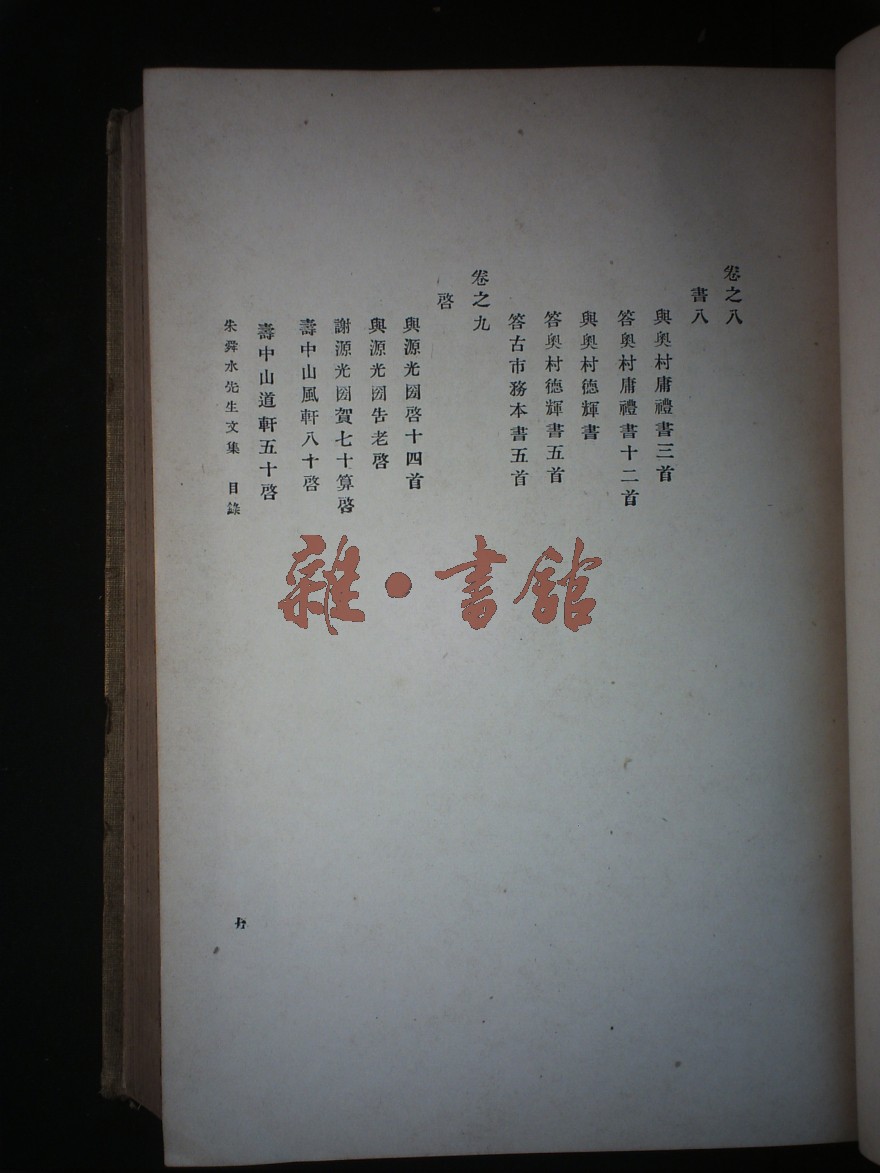 卷之八
書八
與奧村庸禮書三首
答奧村庸禮書十二首
與奧村德輝書
答奧村德輝書五首
答古市務本書五首
卷之九
啓
與源光圀啓十四首
與源光圀告老啓
謝源光圀賀七十算啓
壽中山風軒八十啓
壽中山道軒五十啓
朱舜水先生文集 目錄
雜·書館